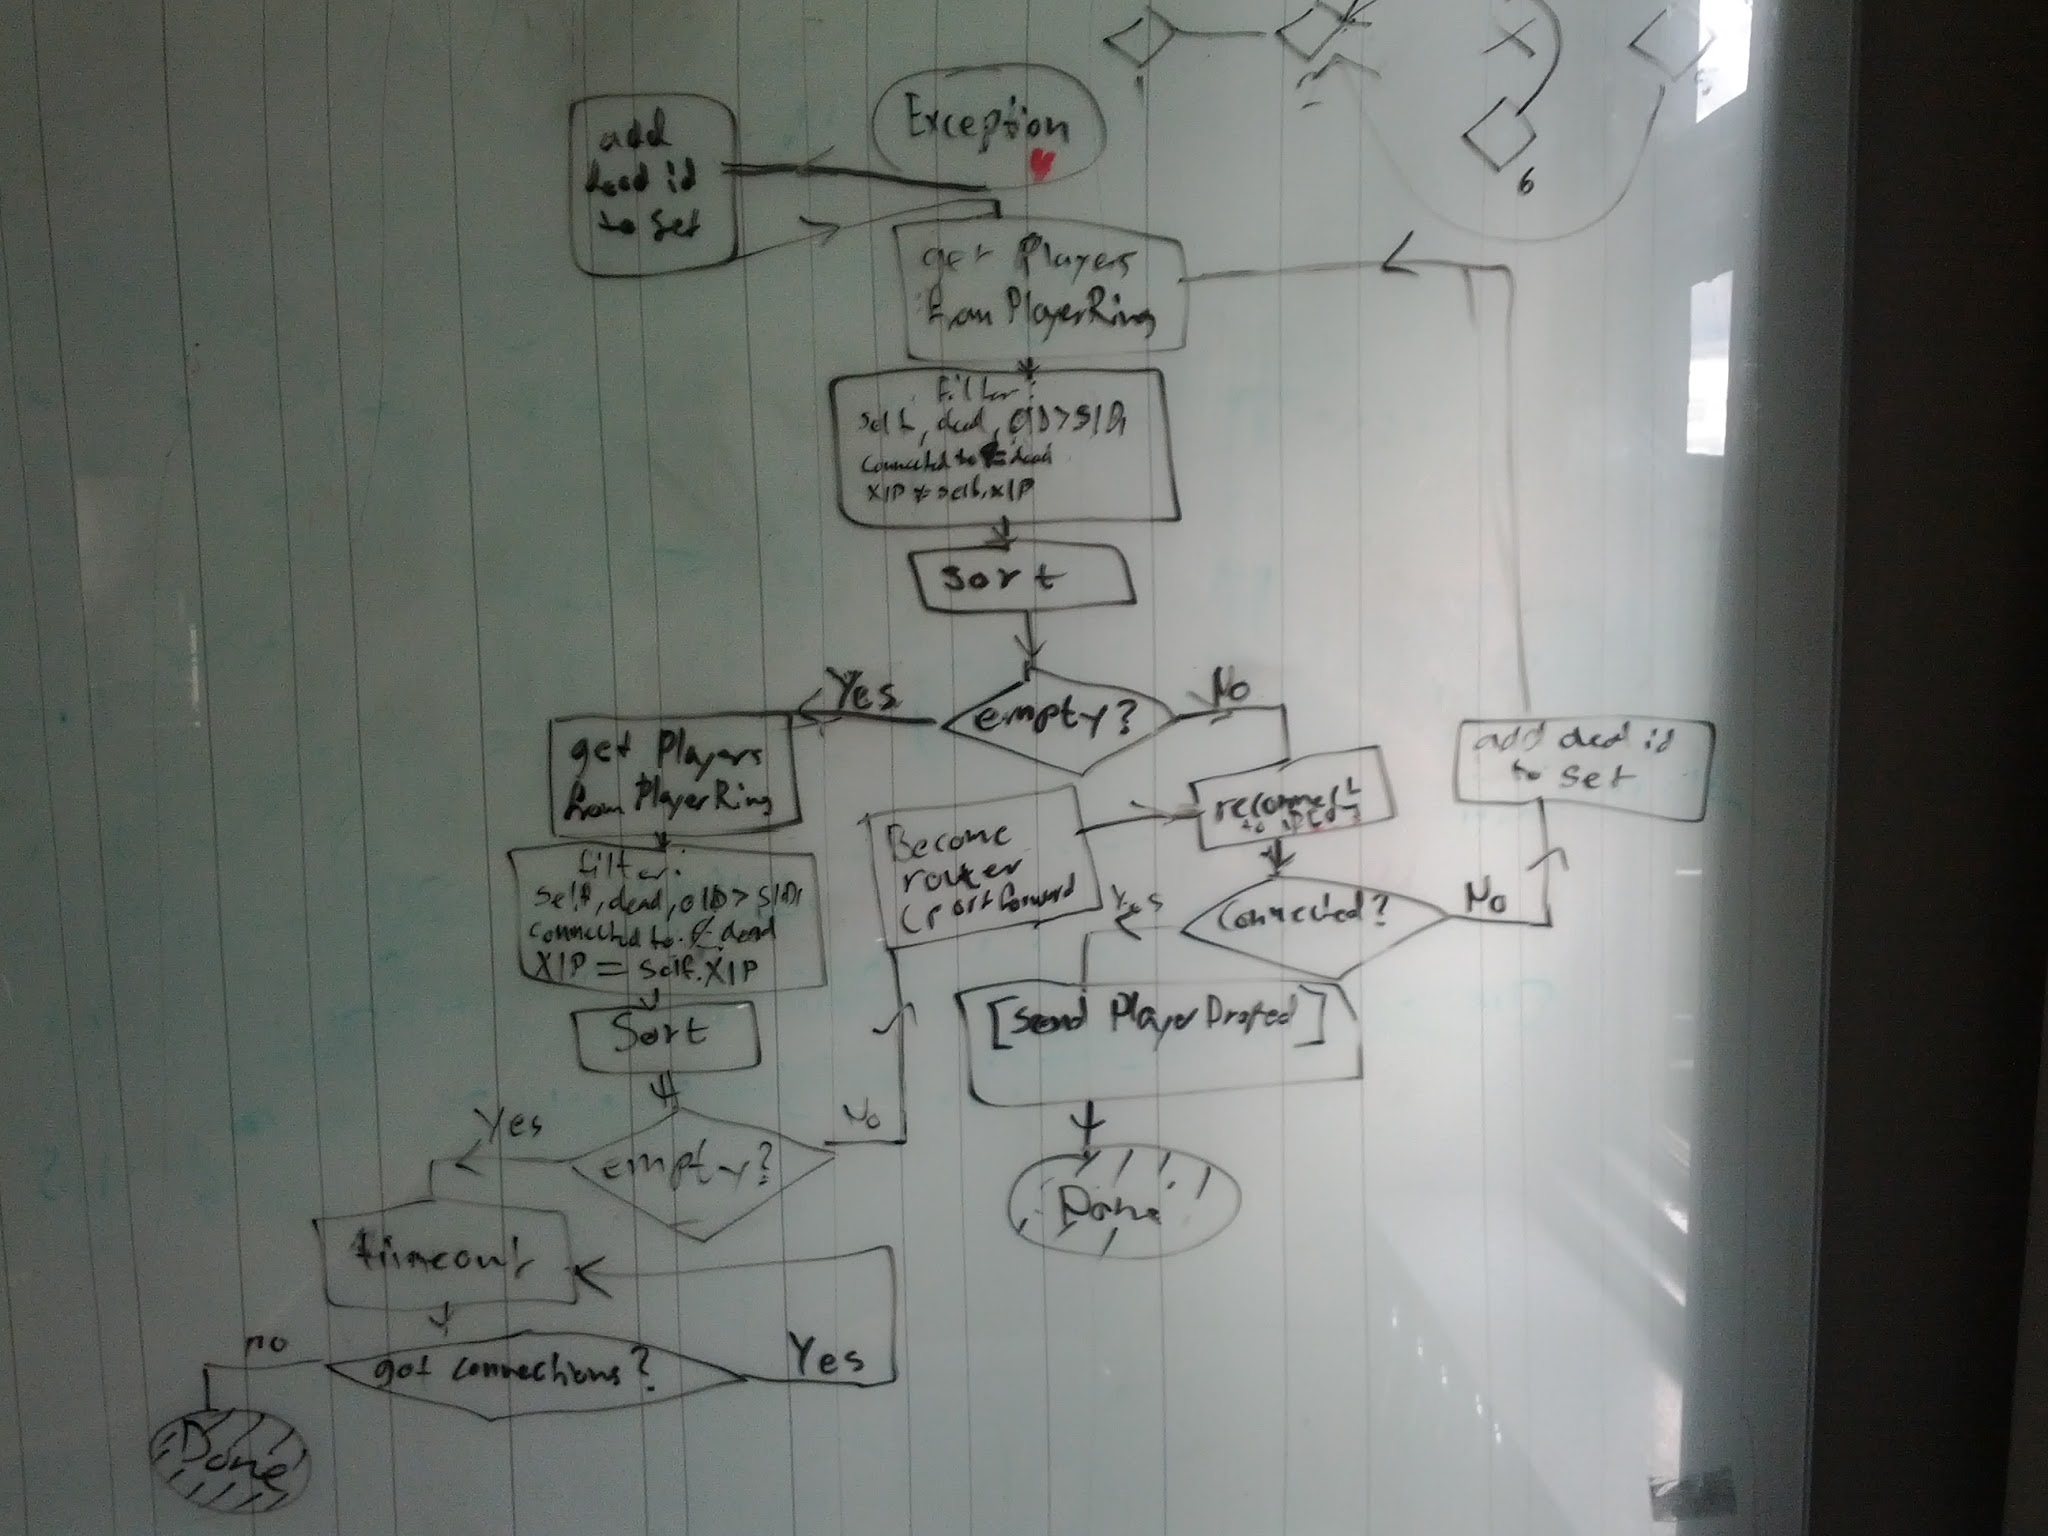 Exception
add
dead id
to set
1
6
5
get Players
from PlayerRing
filter:
self, dead, OID > SID,
connected to ∈ dead
XIP ≠ self.XIP
sort
empty?
Yes
No
get Players
from PlayerRing
filter:
self, dead, OID > SID,
connected to ∉ dead
XIP = self.XIP
Sort
empty?
Yes
No
Become
router
(portforward
reconnect
to
connected?
Yes
No
add dead id
to set
[send PlayerDroped]
Done
timeout
got connections?
no
Yes
Done